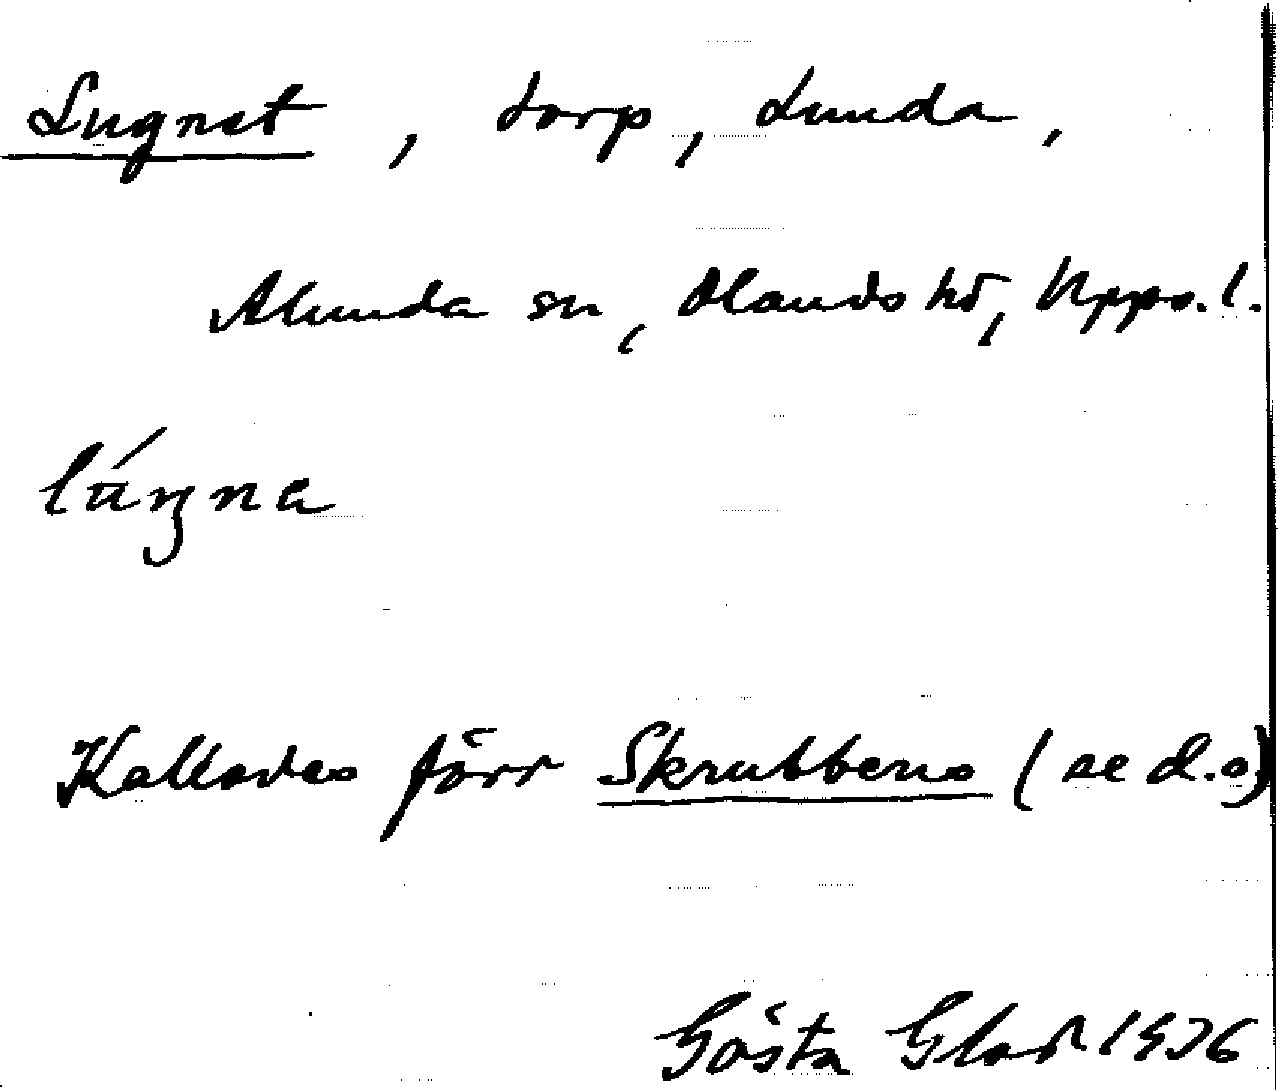 Lugnet, torp, Lunda,
Alunda sn, Olands hd, Upps. l.
lúŋna
Kallades förr Skrubbens (se d.o)
Gösta Glad 1936